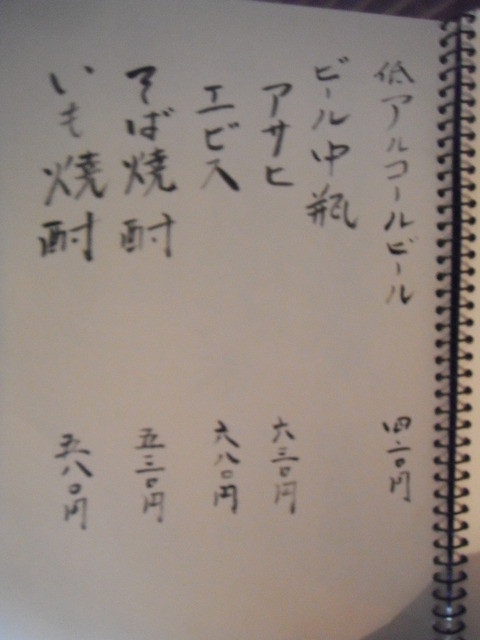 低アルコールビール 四二〇円
ビール中瓶
アサヒ 六三〇円
エビス 六八〇円
そば焼酎 五三〇円
いも焼酎 五八〇円